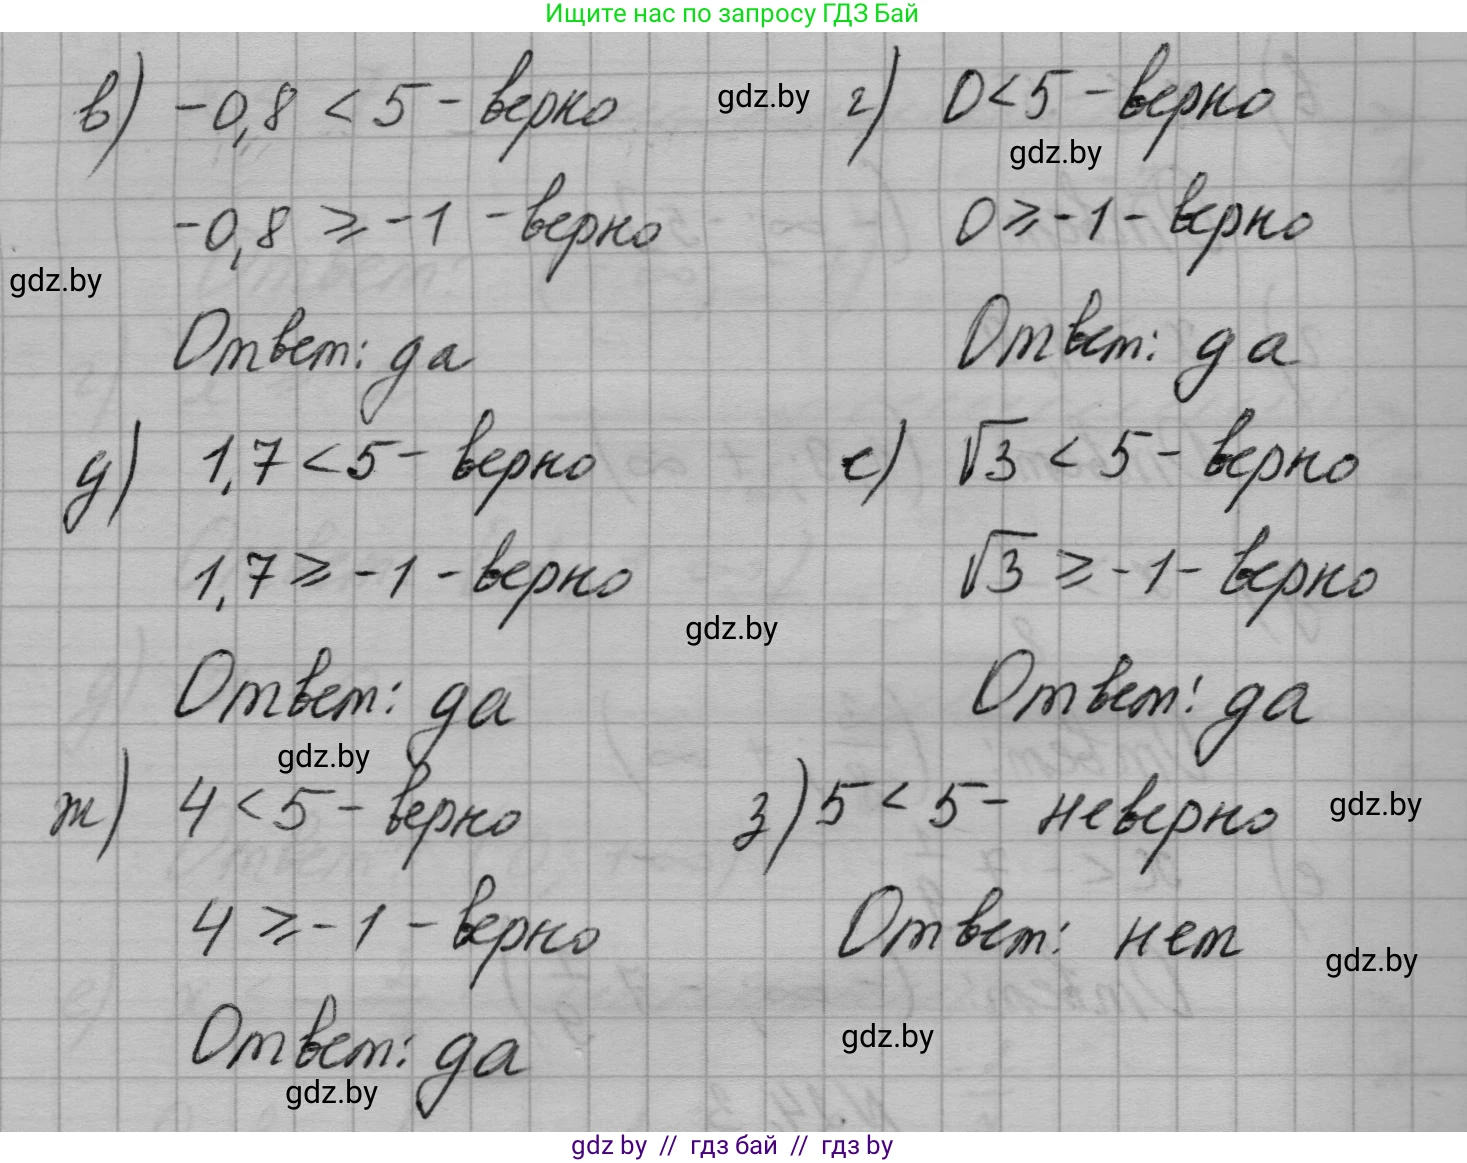 Ищите нас по запросу ГДЗ Бай
в) -0,8 < 5 - верно
gdz.by
г) 0 < 5 - верно
gdz.by
-0,8 ⩾ -1 - верно
0 ⩾ -1 - верно
gdz.by
Ответ: да
Ответ: да
д) 1,7 < 5 - верно
е) √3 < 5 - верно
1,7 ⩾ -1 - верно
√3 ⩾ -1 - верно
gdz.by
Ответ: да
Ответ: да
gdz.by
ж) 4 < 5 - верно
з) 5 < 5 - неверно
gdz.by
4 ⩾ -1 - верно
Ответ: нет
gdz.by
Ответ: да
gdz.by
gdz.by
gdz by // гдз бай // гдз by